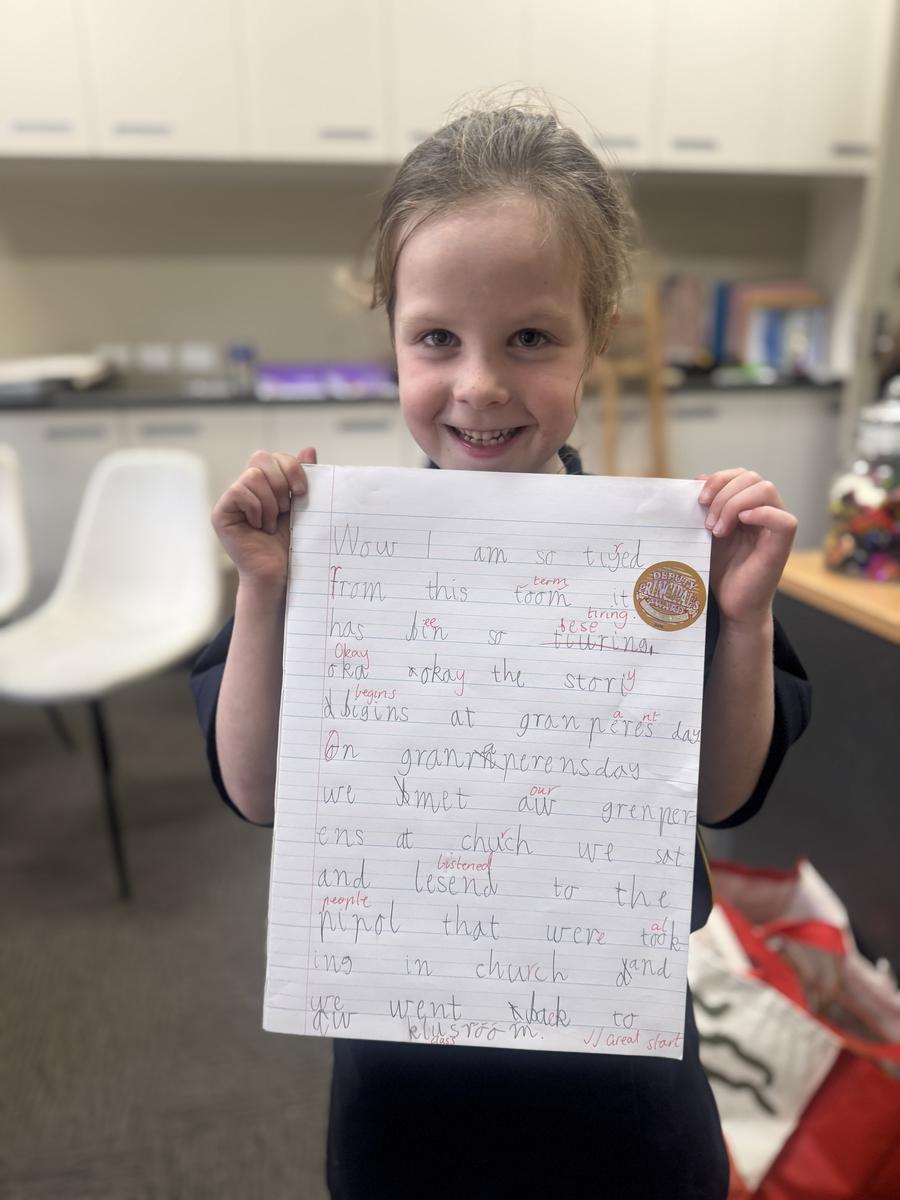 Wow I am so tired
from this toom term it
DEPUTY PRINCIPAL'S AWARD
has bin ee so tiuring, bese tiring.
Okay
oka okay the story
begins
dbigins at granperes a nt day
On granaperensday
we met aw our grenper-
ens at church we sat
listened
and lesend to the
people
pipol that were took al
ing in church and
we went back to
aw klusroom. class
✓✓ a real start